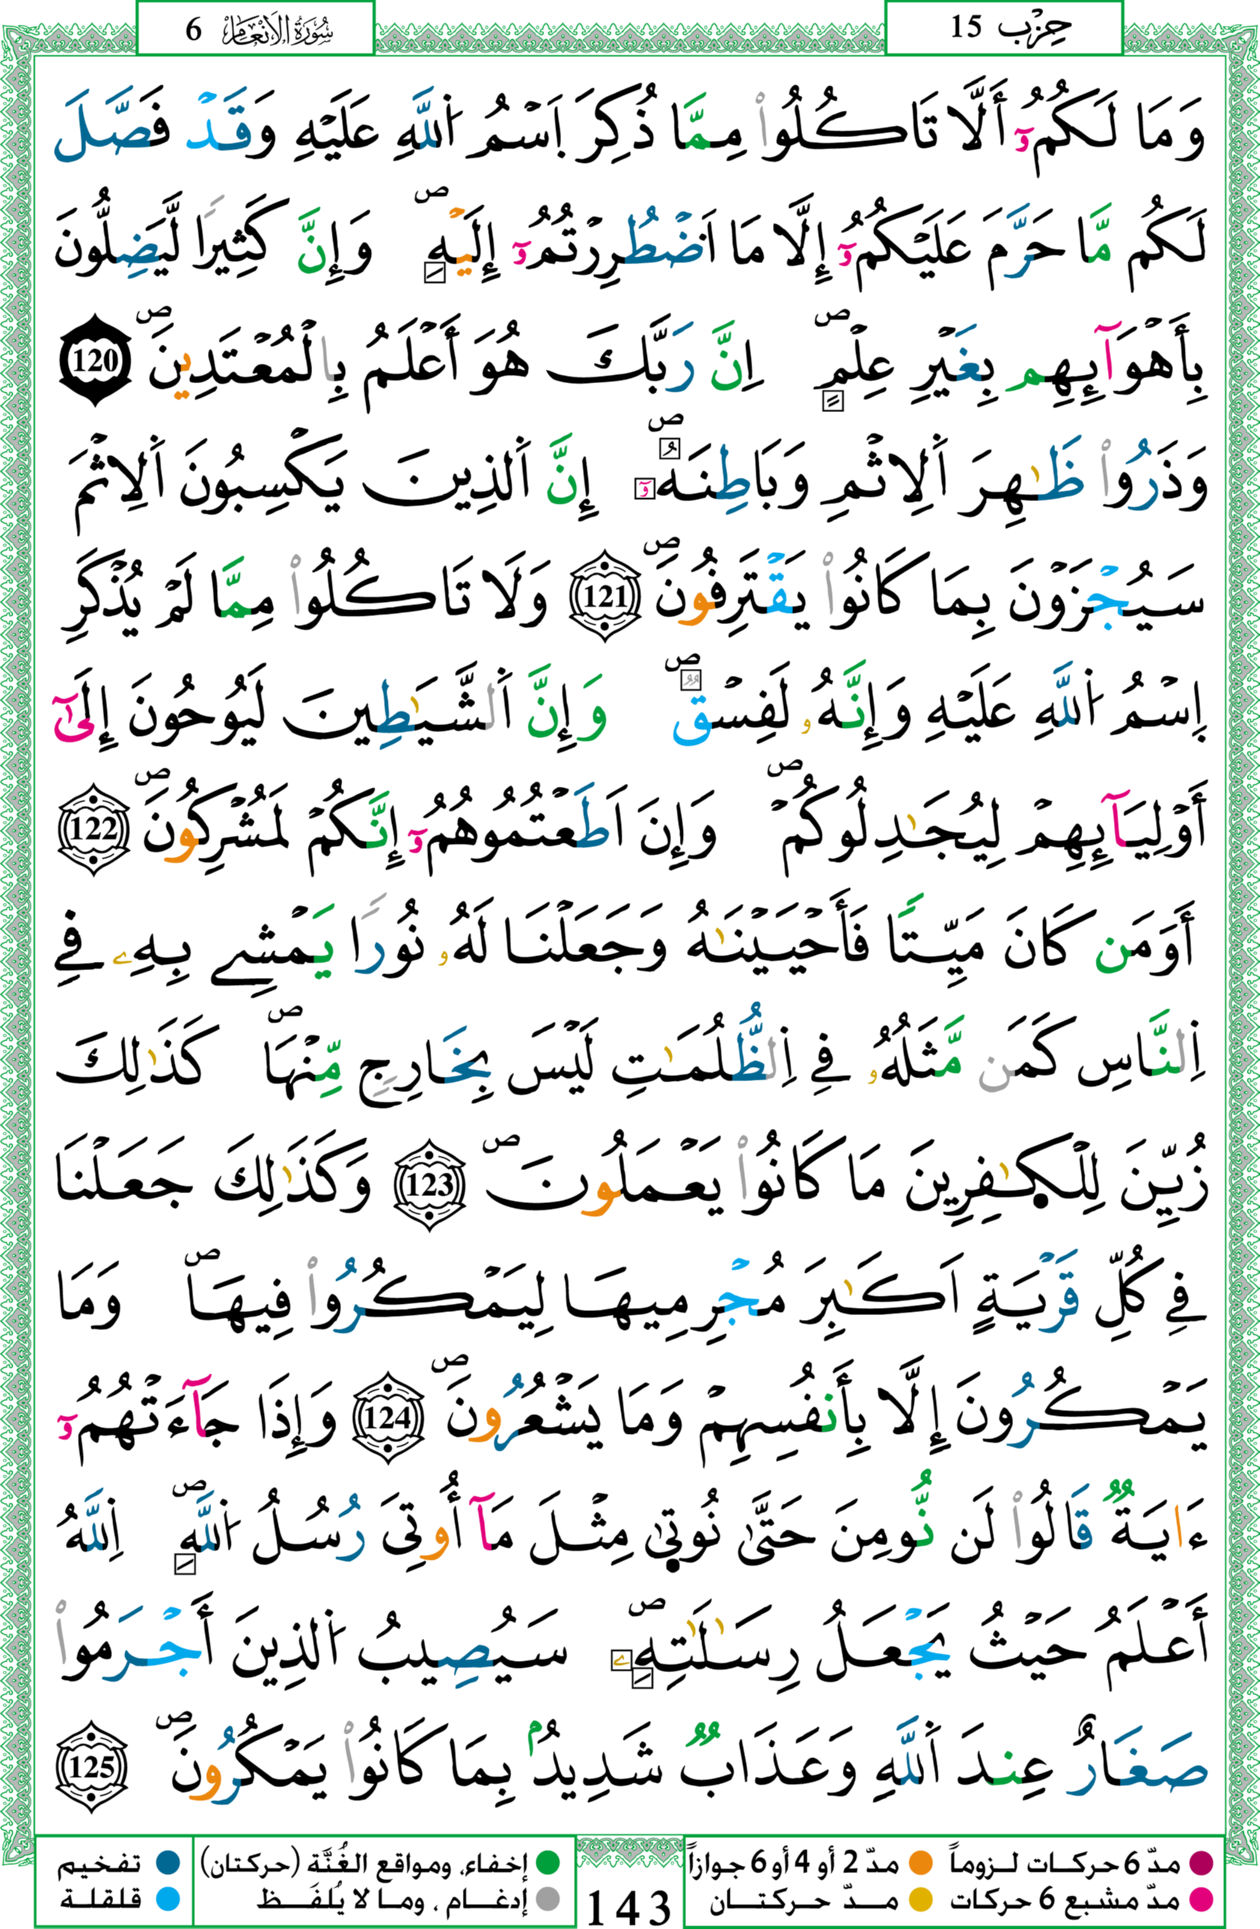 سُورَةُ الأَنْعَام 6
حِزْب 15
وَمَا لَكُمُۥٓ أَلَّا تَاكُلُواْ مِمَّا ذُكِرَ اَسْمُ اُ۬للَّهِ عَلَيْهِ وَقَدْ فَصَّلَ
لَكُم مَّا حَرَّمَ عَلَيْكُمُۥٓ إِلَّا مَا اَضْطُرِرْتُمُۥٓ إِلَيْهِۖ وَإِنَّ كَثِيراٗ لَّيَضِلُّونَ
بِأَهْوَآئِهِم بِغَيْرِ عِلْمٍۖ اِنَّ رَبَّكَ هُوَ أَعْلَمُ بِالْمُعْتَدِينَۖ 120
وَذَرُواْ ظَٰهِرَ اَلِاثْمِ وَبَاطِنَهُۥٓۖ إِنَّ اَلذِينَ يَكْسِبُونَ اَلِاثْمَ
سَيُجْزَوْنَ بِمَا كَانُواْ يَقْتَرِفُونَۖ 121 وَلَا تَاكُلُواْ مِمَّا لَمْ يُذْكَرِ
اِسْمُ اُ۬للَّهِ عَلَيْهِ وَإِنَّهُۥ لَفِسْقٞۖ وَإِنَّ اَلشَّيَٰطِينَ لَيُوحُونَ إِلَىٰٓ
أَوْلِيَآئِهِمْ لِيُجَٰدِلُوكُمْۖ وَإِنَ اَطَعْتُمُوهُمُۥٓ إِنَّكُمْ لَمُشْرِكُونَۖ 122
أَوَمَن كَانَ مَيِّتاٗ فَأَحْيَيْنَٰهُ وَجَعَلْنَا لَهُۥ نُوراٗ يَمْشِے بِهِۦ فِے
اِلنَّاسِ كَمَن مَّثَلُهُۥ فِے اِلظُّلُمَٰتِ لَيْسَ بِخَارِجٖ مِّنْهَاۖ كَذَٰلِكَ
زُيِّنَ لِلْكٰ۪فِرِينَ مَا كَانُواْ يَعْمَلُونَۖ 123 وَكَذَٰلِكَ جَعَلْنَا
فِے كُلِّ قَرْيَةٍ اَكَٰبِرَ مُجْرِمِيهَا لِيَمْكُرُواْ فِيهَاۖ وَمَا
يَمْكُرُونَ إِلَّا بِأَنفُسِهِمْ وَمَا يَشْعُرُونَۖ 124 وَإِذَا جَآءَتْهُمُۥٓ
ءَايَةٞ قَالُواْ لَن نُّومِنَ حَتَّىٰ نُوت۪يٰ مِثْلَ مَآ أُوتِيَ رُسُلُ اُ۬للَّهِۖ اِ۬للَّهُ
أَعْلَمُ حَيْثُ يَجْعَلُ رِسَٰلَٰتِهِۦۖ سَيُصِيبُ اُ۬لذِينَ أَجْرَمُواْ
صَغَارٌ عِندَ اَ۬للَّهِ وَعَذَابٞ شَدِيدُۢ بِمَا كَانُواْ يَمْكُرُونَۖ 125
مدّ 6 حركات لـزوماً
مدّ 2 أو 4 أو 6 جوازاً
إخفاء، ومواقع الغُنَّة (حركتان)
تفخيم
مدّ مشبع 6 حركات
مـدّ حـركتــان
إدغـام ، ومـا لا يُلفَـظ
قلقلة
143